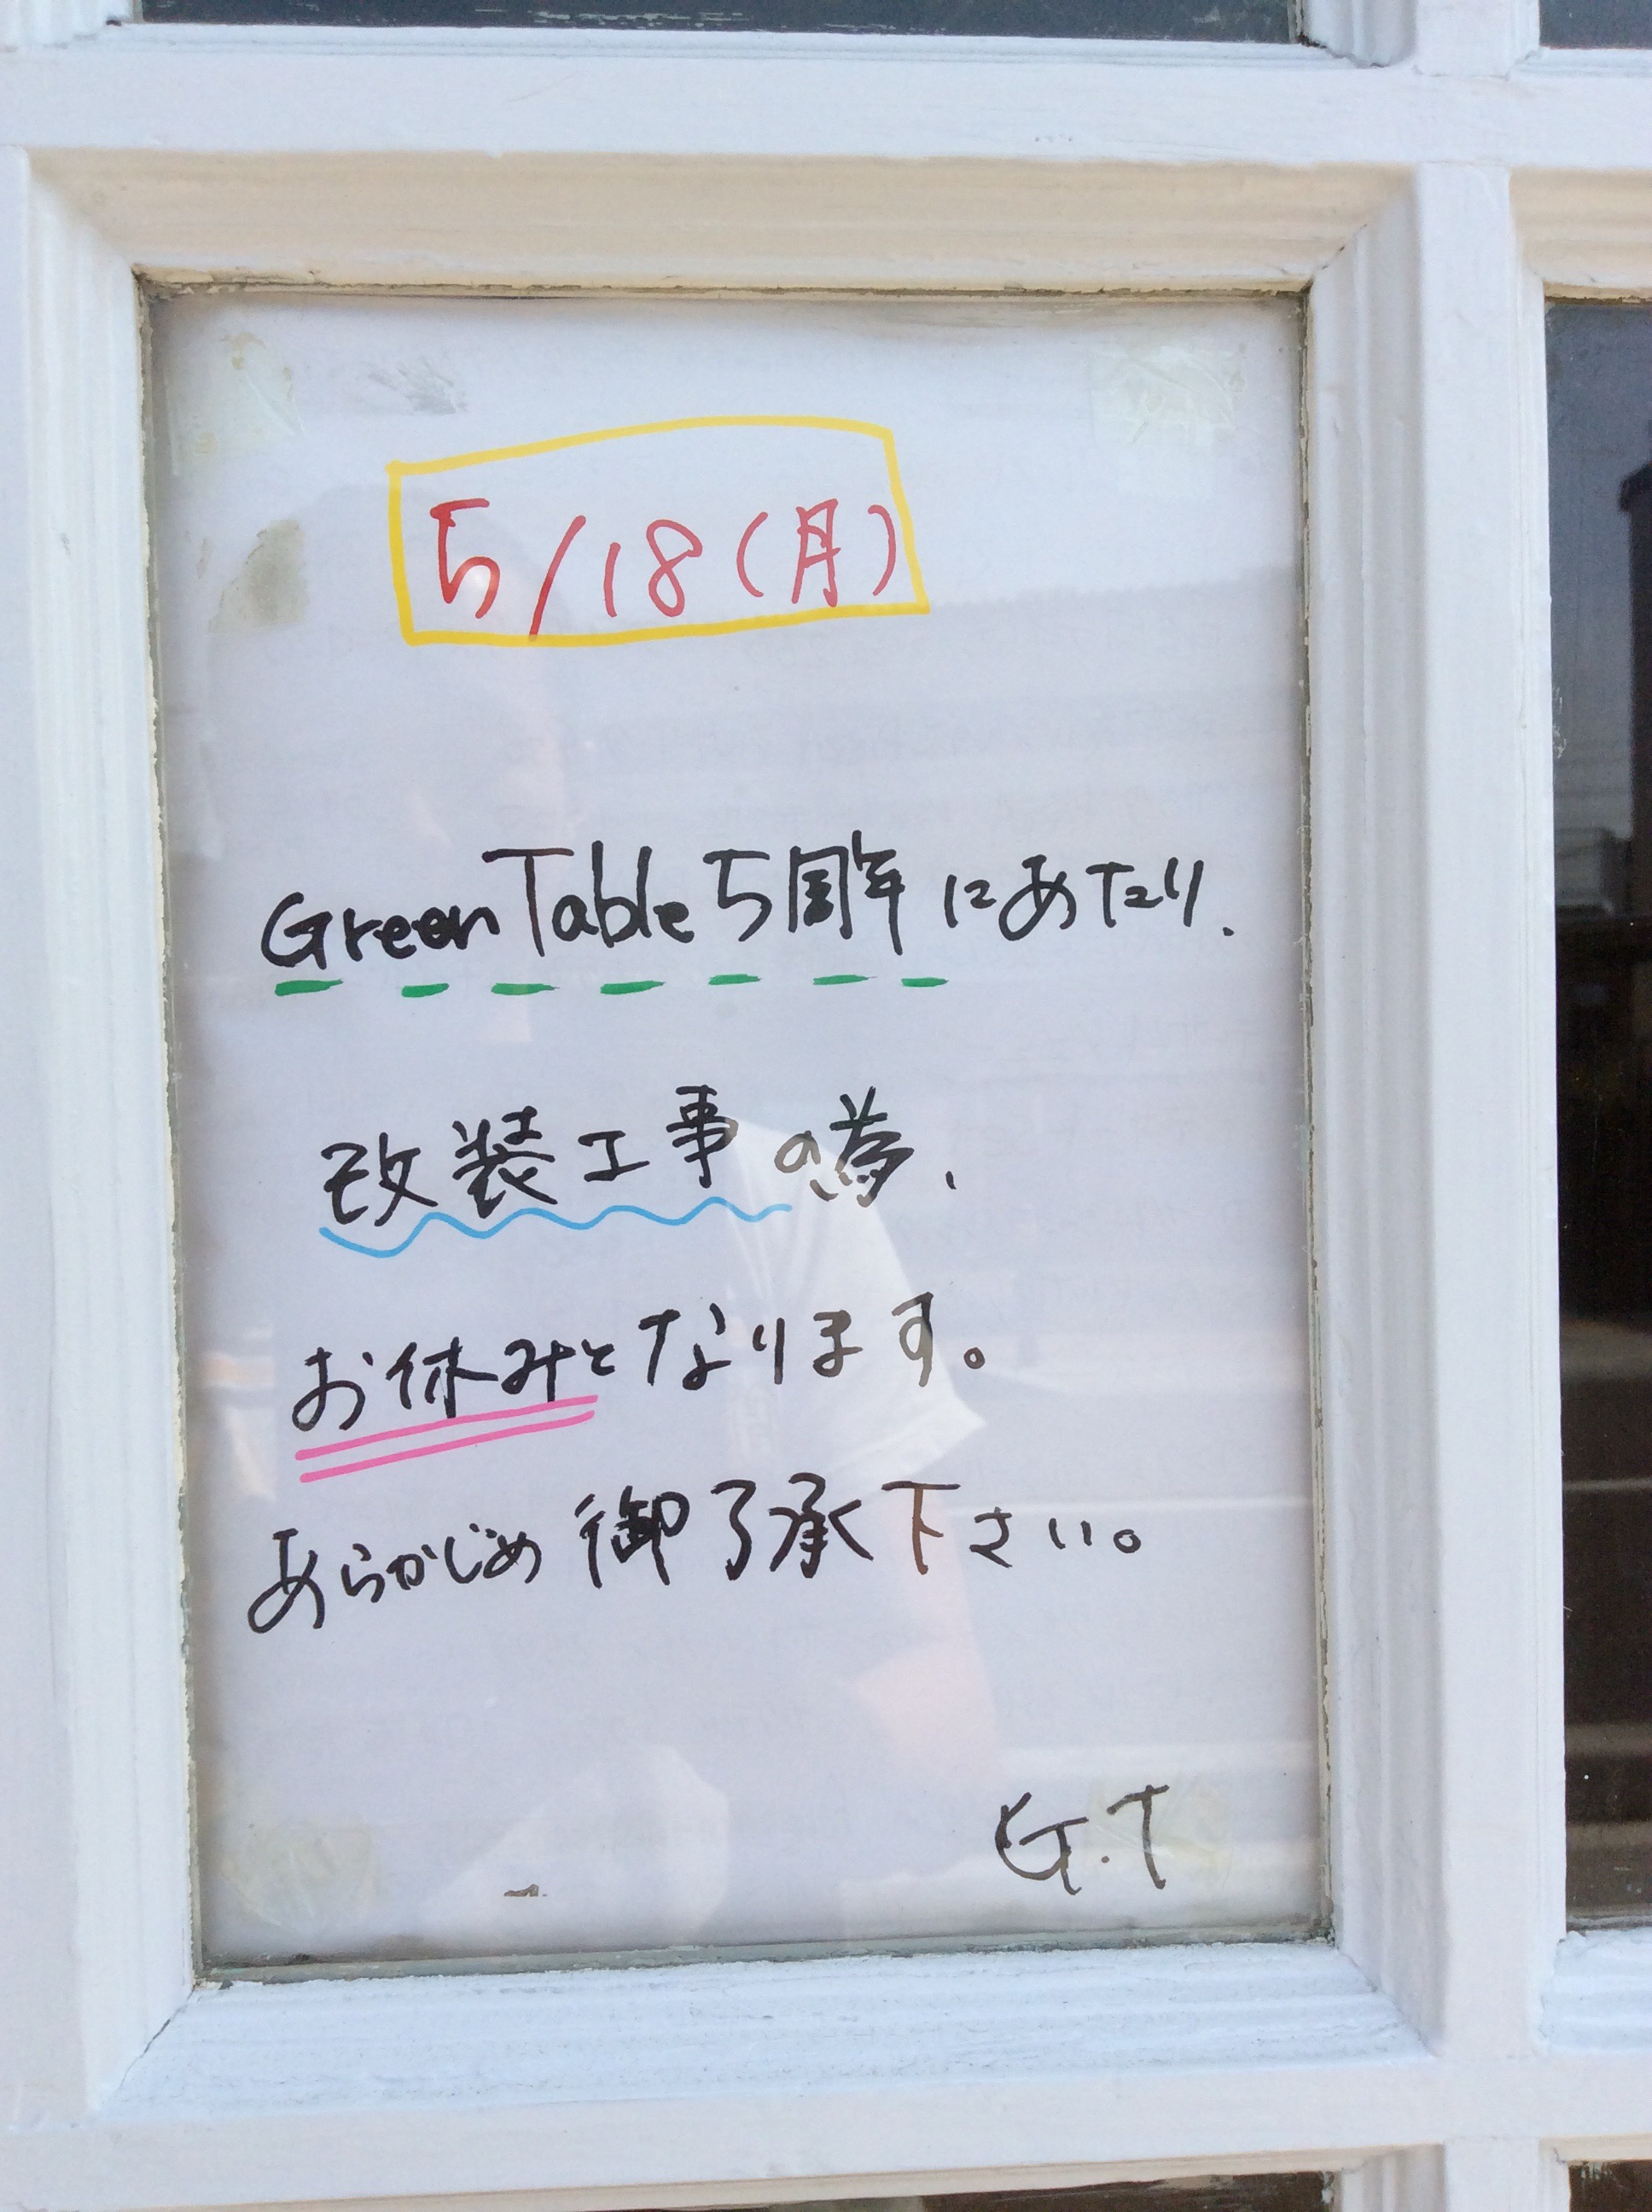 5/18(月)
Green Table 5周年にあたり、
改装工事の為、
お休みとなります。
あらかじめ御了承下さい。
G.T